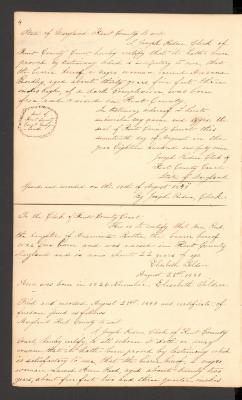 4
State of Maryland Kent County to wit:
I Joseph Redue Clerk of
Kent County Court hereby certify that it hath been
proved by testimony which is satisfactory to me, that
the bearer hereof a negro woman named
aged about thirty years five feet three
inches high, of a dark Complexion was born
free and raised in Kent County
In testimony whereof I hereto
subscribe my name and affix the
seal of Kent County Court this
day of August
Eighteen hundred and forty nine
Joseph Redue Clk of
Kent County Court
State of Maryland
Seal of
Kent County
Court
and recorded on the day of August 1849
By Joseph Redue, Clerk.
To the Clerk of Kent County Court
This is to certify that Ann Reed
the daughter of the bearer hereof
was free born and was raised in Kent County
Maryland and is now about 22 years of age
Elizabeth
August 21st 1849
Ann was born in 1826 November, Elizabeth
Filed and recorded August 21st 1849 and certificate of
freedom given as follows
Maryland Kent County to wit:
I Joseph Redue Clerk of Kent County
Court hereby certify to all whom it doth or may
concern that it hath been proved by testimony which
is satisfactory to me that the bearer hereof, a negro
woman named Ann Reed, aged about twenty two
years, about five feet two and three quarter inches